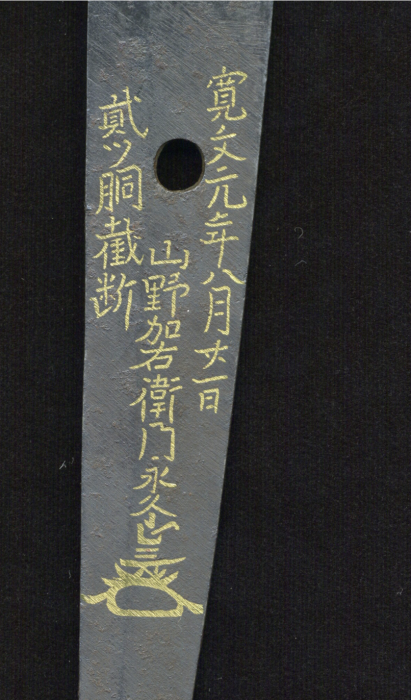 寛文元年八月廿一日
山野加右衛門永久
貳ツ胴截断